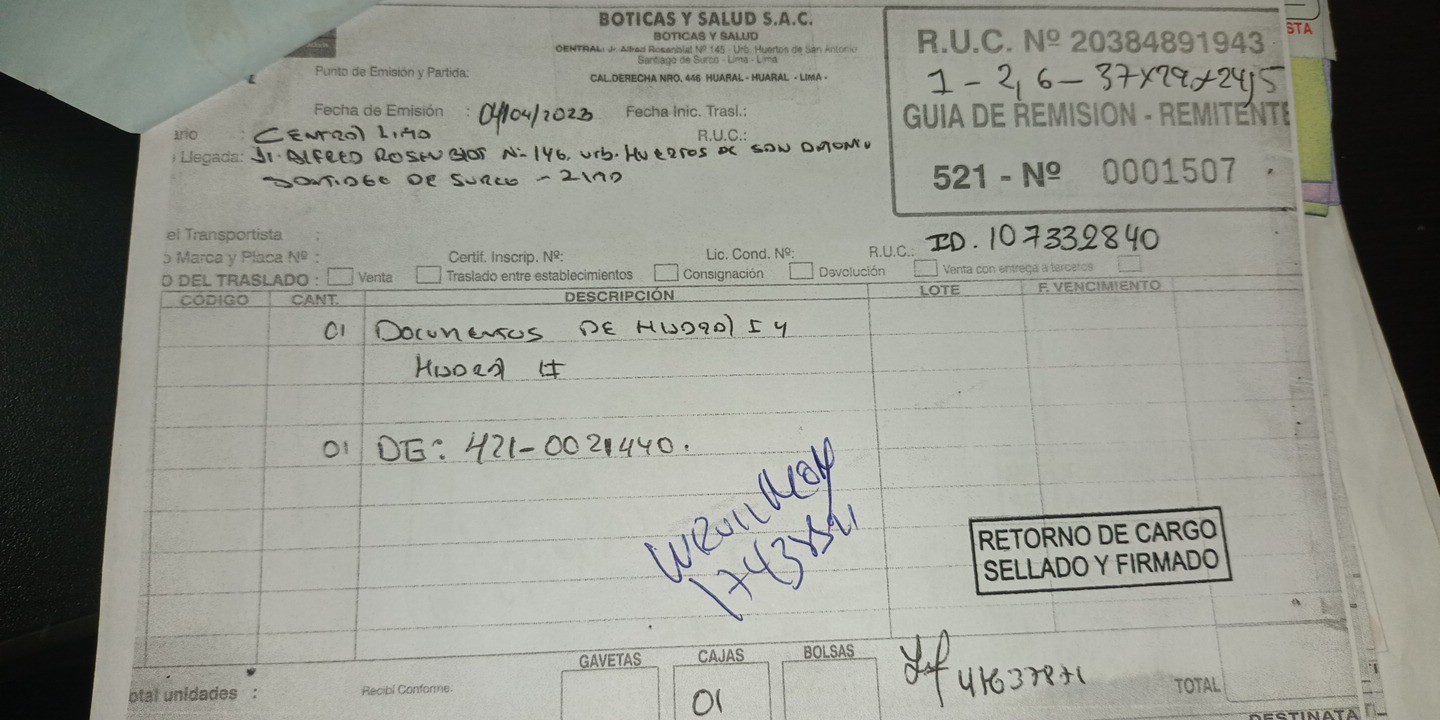 BOTICAS Y SALUD S.A.C.
BOTICAS Y SALUD
CENTRAL: Jr. Alfred Rosenblat Nº 145 - Urb. Huertos de San Antonio
Santiago de Surco - Lima - Lima
CAL.DERECHA NRO. 446 HUARAL - HUARAL - LIMA -
R.U.C. Nº 20384891943
1 - 2,6 - 37x29x24,5
GUIA DE REMISION - REMITENTE
521 - Nº 0001507
STA
Punto de Emisión y Partida:
Fecha de Emisión : 04/04/2023 Fecha Inic. Trasl.:
ario : CENTRAL LIMA R.U.C.:
Llegada: Jr. ALFRED ROSENBLAT Nº 146. Urb. HUERTOS DE SAN ANTONIO
SANTIAGO DE SURCO - LIMA
el Transportista :
o Marca y Placa Nº : Certif. Inscrip. Nº: Lic. Cond. Nº: R.U.C.: ID. 107332840
O DEL TRASLADO : Venta Traslado entre establecimientos Consignación Devolución Venta con entrega a terceros
CÓDIGO CANT. DESCRIPCIÓN LOTE F. VENCIMIENTO
01 DOCUMENTOS DE HUARAL I Y
HUARAL II
01 DE: 421-0021440.
RETORNO DE CARGO
SELLADO Y FIRMADO
GAVETAS CAJAS BOLSAS
otal unidades : Recibí Conforme: 01 TOTAL
DESTINATA